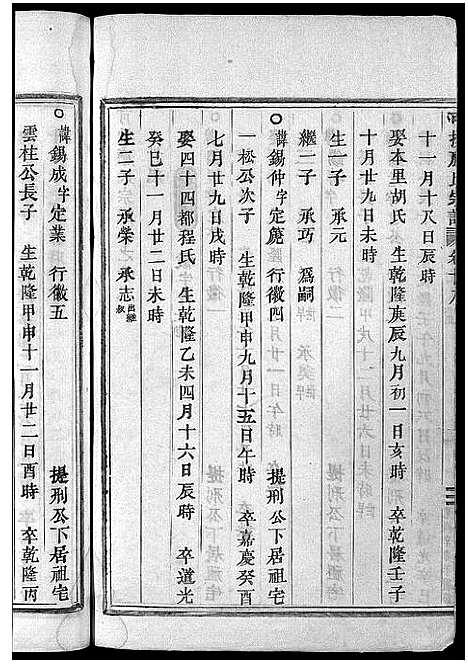 十一月十八日辰時
娶本里胡氏 生乾隆庚辰九月初一日亥時 卒乾隆壬子
十月廿九日未時
生一子 承元
繼二子 承巧 為嗣
諱錫仲字定簏 行徽四 提刑公下居祖宅
一松公次子 生乾隆甲申九月十五日午時 卒嘉慶癸酉
七月廿九日戌時
娶四十四都程氏 生乾隆乙未四月十六日辰時 卒道光
癸巳十一月廿二日未時
生二子 承榮 承志 出繼叔
諱錫成字定業 行徽五 提刑公下居祖宅
雲桂公長子 生乾隆甲申十一月廿二日酉時 卒乾隆丙